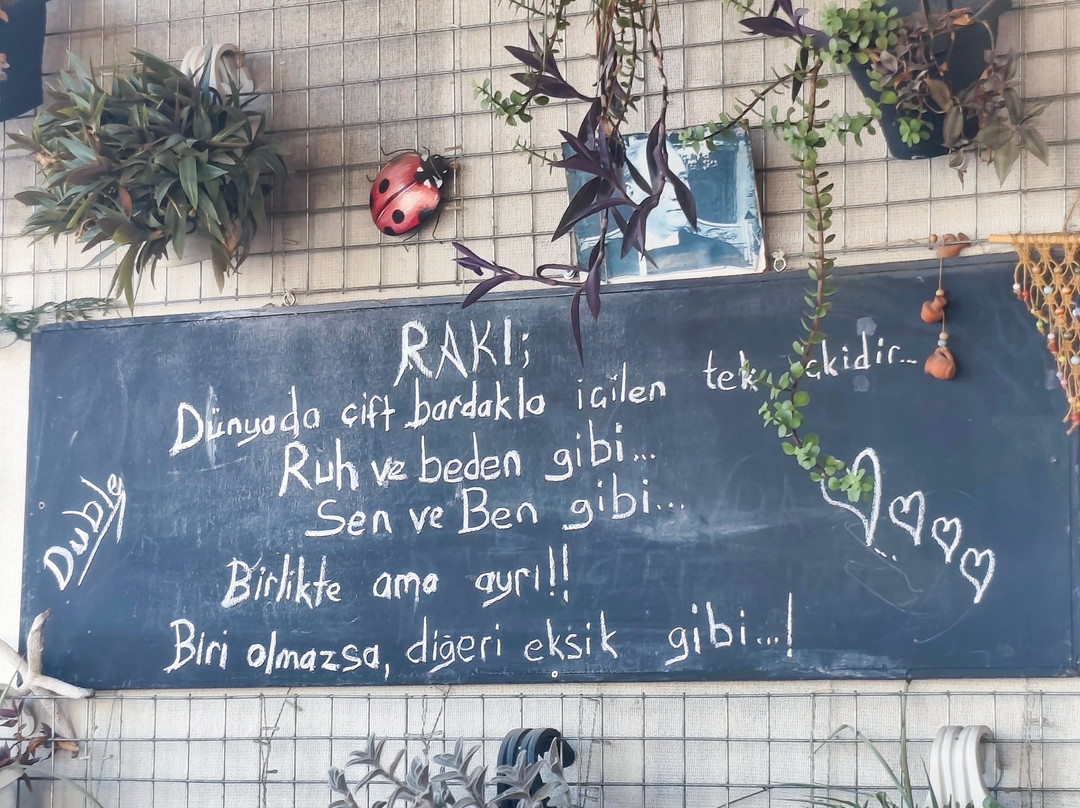 RAKI;
Dünyada çift bardakla içilen tek içkidir...
Ruh ve beden gibi...
Sen ve Ben gibi...
Birlikte ama ayrı!!
Biri olmazsa, diğeri eksik gibi...!
Duble